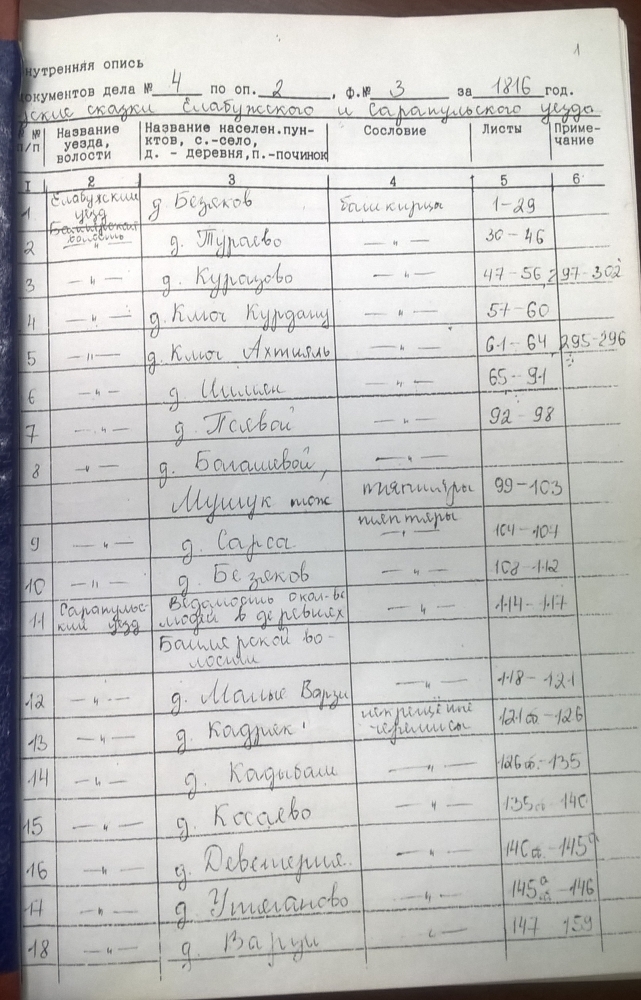 1
нутренняя опись
окументов дела № 4 по оп. 2, ф.№ 3 за 1816 год.
ские сказки Елабужского и Сарапульского уезда
№№ п/п | Название уезда, волости | Название населен.пунктов, с.-село, д. - деревня, п.-починок | Сословие | Листы | Примечание
1 2 3 4 5 6
1 Елабужский уезд д Безяков башкирцы 1-29
2 волость д. Тураево — " — 30-46
3 — " — д. — " — 47-56, 297-302
4 — " — д. Ключ — " — 57-60
5 — " — д. Ключ Ахтияль — " — 61-64, 295-296
6 — " — д. — " — 65-91
7 — " — д. Псевой — " — 92-98
8 — " — д. — " —
Мушук тож 99-103
тептяры
9 — " — д. Сарса — " — 104-107
10 — " — д. Безяков 108-112
11 Сарапульский уезд Ведомость людей в деревнях — " — 114-117
волости
12 — " — д. Малые Варзи — " — 118-121
13 — " — д. Кадряк некрещёные черемисы 121об-126
14 — " — д. Кадыбаш — " — 126об.-135
15 — " — д. Касаево — " — 135об-140
16 — " — д. — " — 140об.-145а
17 — " — д Утяганово — " — 145а об-146
18 — " — д. Варзи — " — 147 159